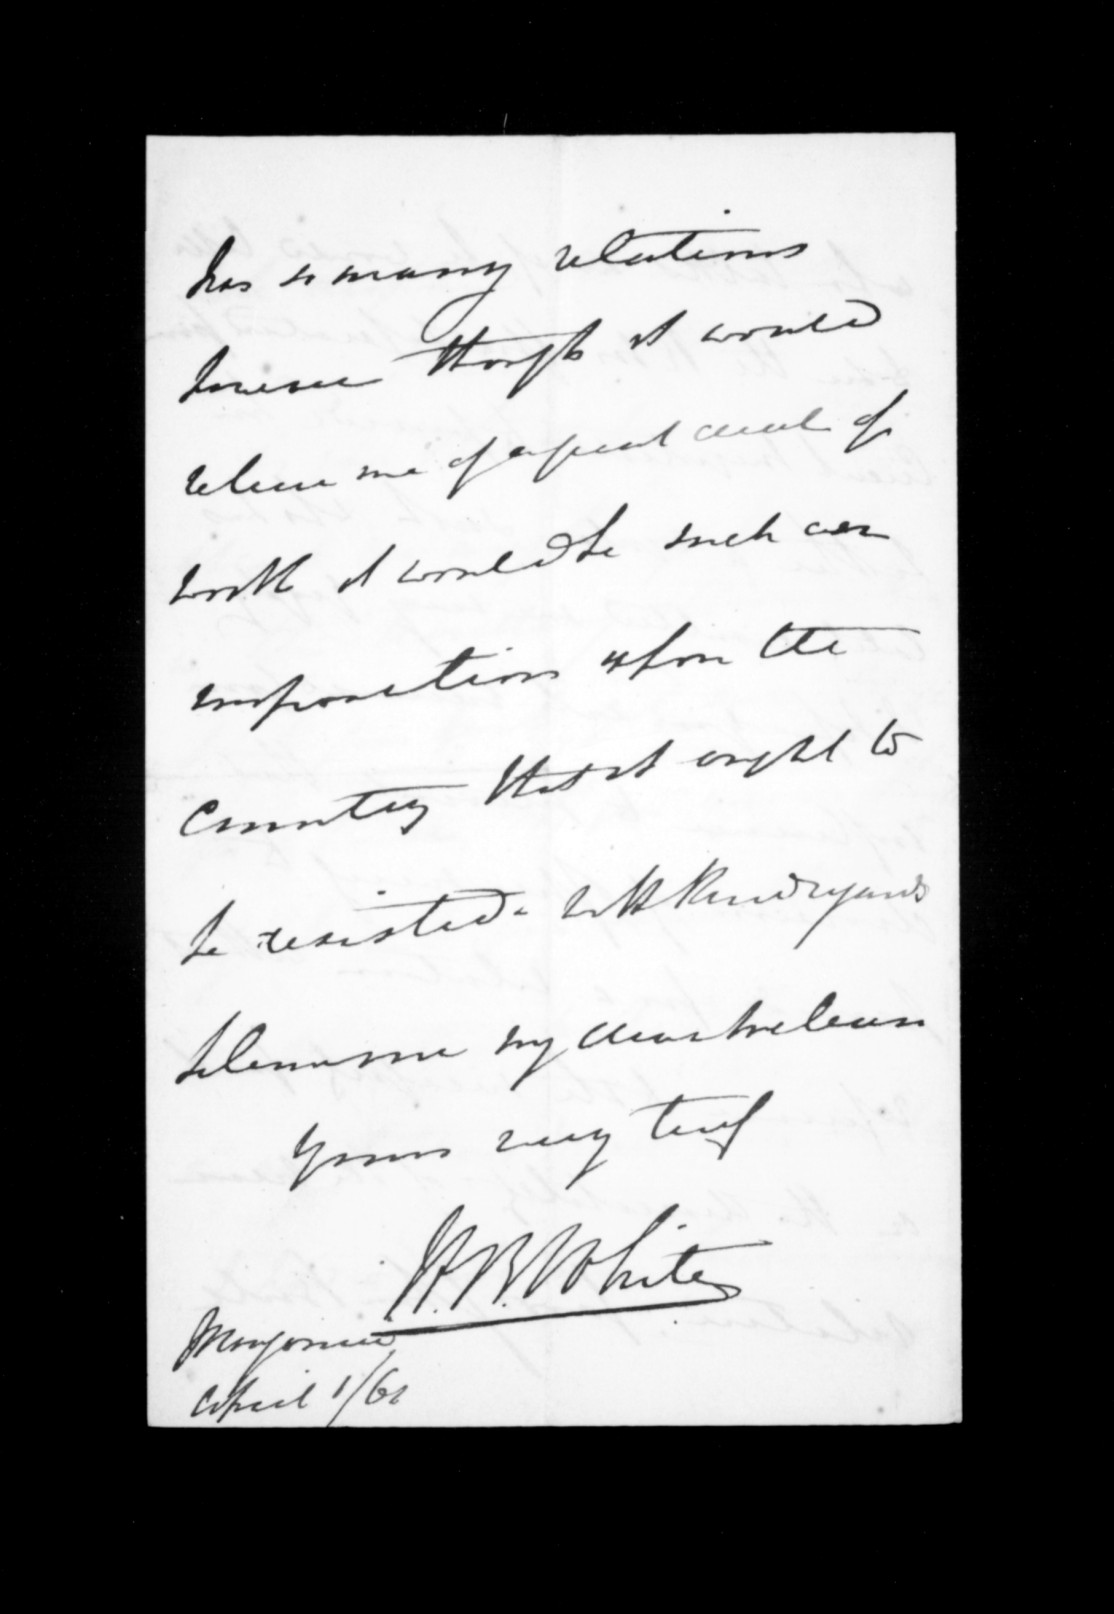 has so many relations
however though it would
relieve me of a great deal of
work it would be such an
imposition upon the
Country that it ought to
be resisted - with kind regards
believe me my dear McLean
Yours very truly
W. B. White
Mongonui
April 1/61